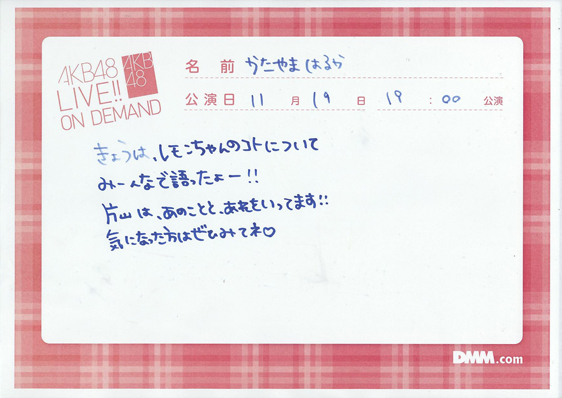 AKB48
LIVE!!
ON DEMAND
AKB
48
名前 かたやまはるか
公演日 11月19日 19:00 公演
きょうは、レモンちゃんのコトについて
みーんなで語ったよー!!
片山は、あのことと、あれをいってます!!
気になった方はぜひみてネ♡
DMM.com